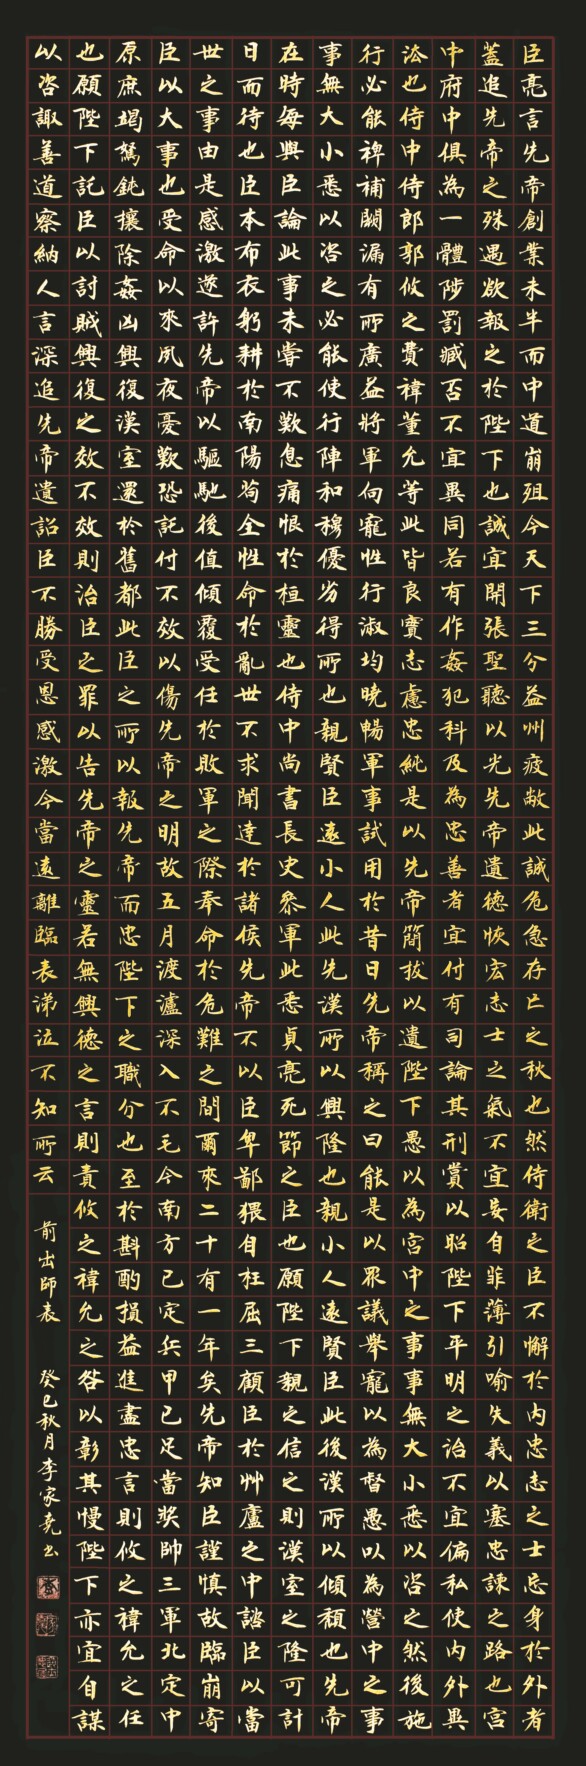 臣亮言先帝創業未半而中道崩殂今天下三分益州疲敝此誠危急存亡之秋也然侍衛之臣不懈於內忠志之士忘身於外者
蓋追先帝之殊遇欲報之於陛下也誠宜開張聖聽以光先帝遺德恢宏志士之氣不宜妄自菲薄引喻失義以塞忠諫之路也宮
中府中俱為一體陟罰臧否不宜異同若有作姦犯科及為忠善者宜付有司論其刑賞以昭陛下平明之治不宜偏私使內外異
法也侍中侍郎郭攸之費禕董允等此皆良實志慮忠純是以先帝簡拔以遺陛下愚以為宮中之事事無大小悉以咨之然後施
行必能裨補闕漏有所廣益將軍向寵性行淑均曉暢軍事試用於昔日先帝稱之曰能是以眾議舉寵以為督愚以為營中之事
事無大小悉以咨之必能使行陣和穆優劣得所也親賢臣遠小人此先漢所以興隆也親小人遠賢臣此後漢所以傾頹也先帝
在時每與臣論此事未嘗不歎息痛恨於桓靈也侍中尚書長史參軍此悉貞亮死節之臣也願陛下親之信之則漢室之隆可計
日而待也臣本布衣躬耕於南陽苟全性命於亂世不求聞達於諸侯先帝不以臣卑鄙猥自枉屈三顧臣於艸廬之中諮臣以當
世之事由是感激遂許先帝以驅馳後值傾覆受任於敗軍之際奉命於危難之間爾來二十有一年矣先帝知臣謹慎故臨崩寄
臣以大事也受命以來夙夜憂歎恐託付不效以傷先帝之明故五月渡瀘深入不毛今南方已定兵甲已足當獎帥三軍北定中
原庶竭駑鈍攘除姦凶興復漢室還於舊都此臣之所以報先帝而忠陛下之職分也至於斟酌損益進盡忠言則攸之禕允之任
也願陛下託臣以討賊興復之效不效則治臣之罪以告先帝之靈若無興德之言則責攸之禕允之咎以彰其慢陛下亦宜自謀
以咨諏善道察納人言深追先帝遺詔臣不勝受恩感激今當遠離臨表涕泣不知所云
前出師表 癸巳秋月李家尧书